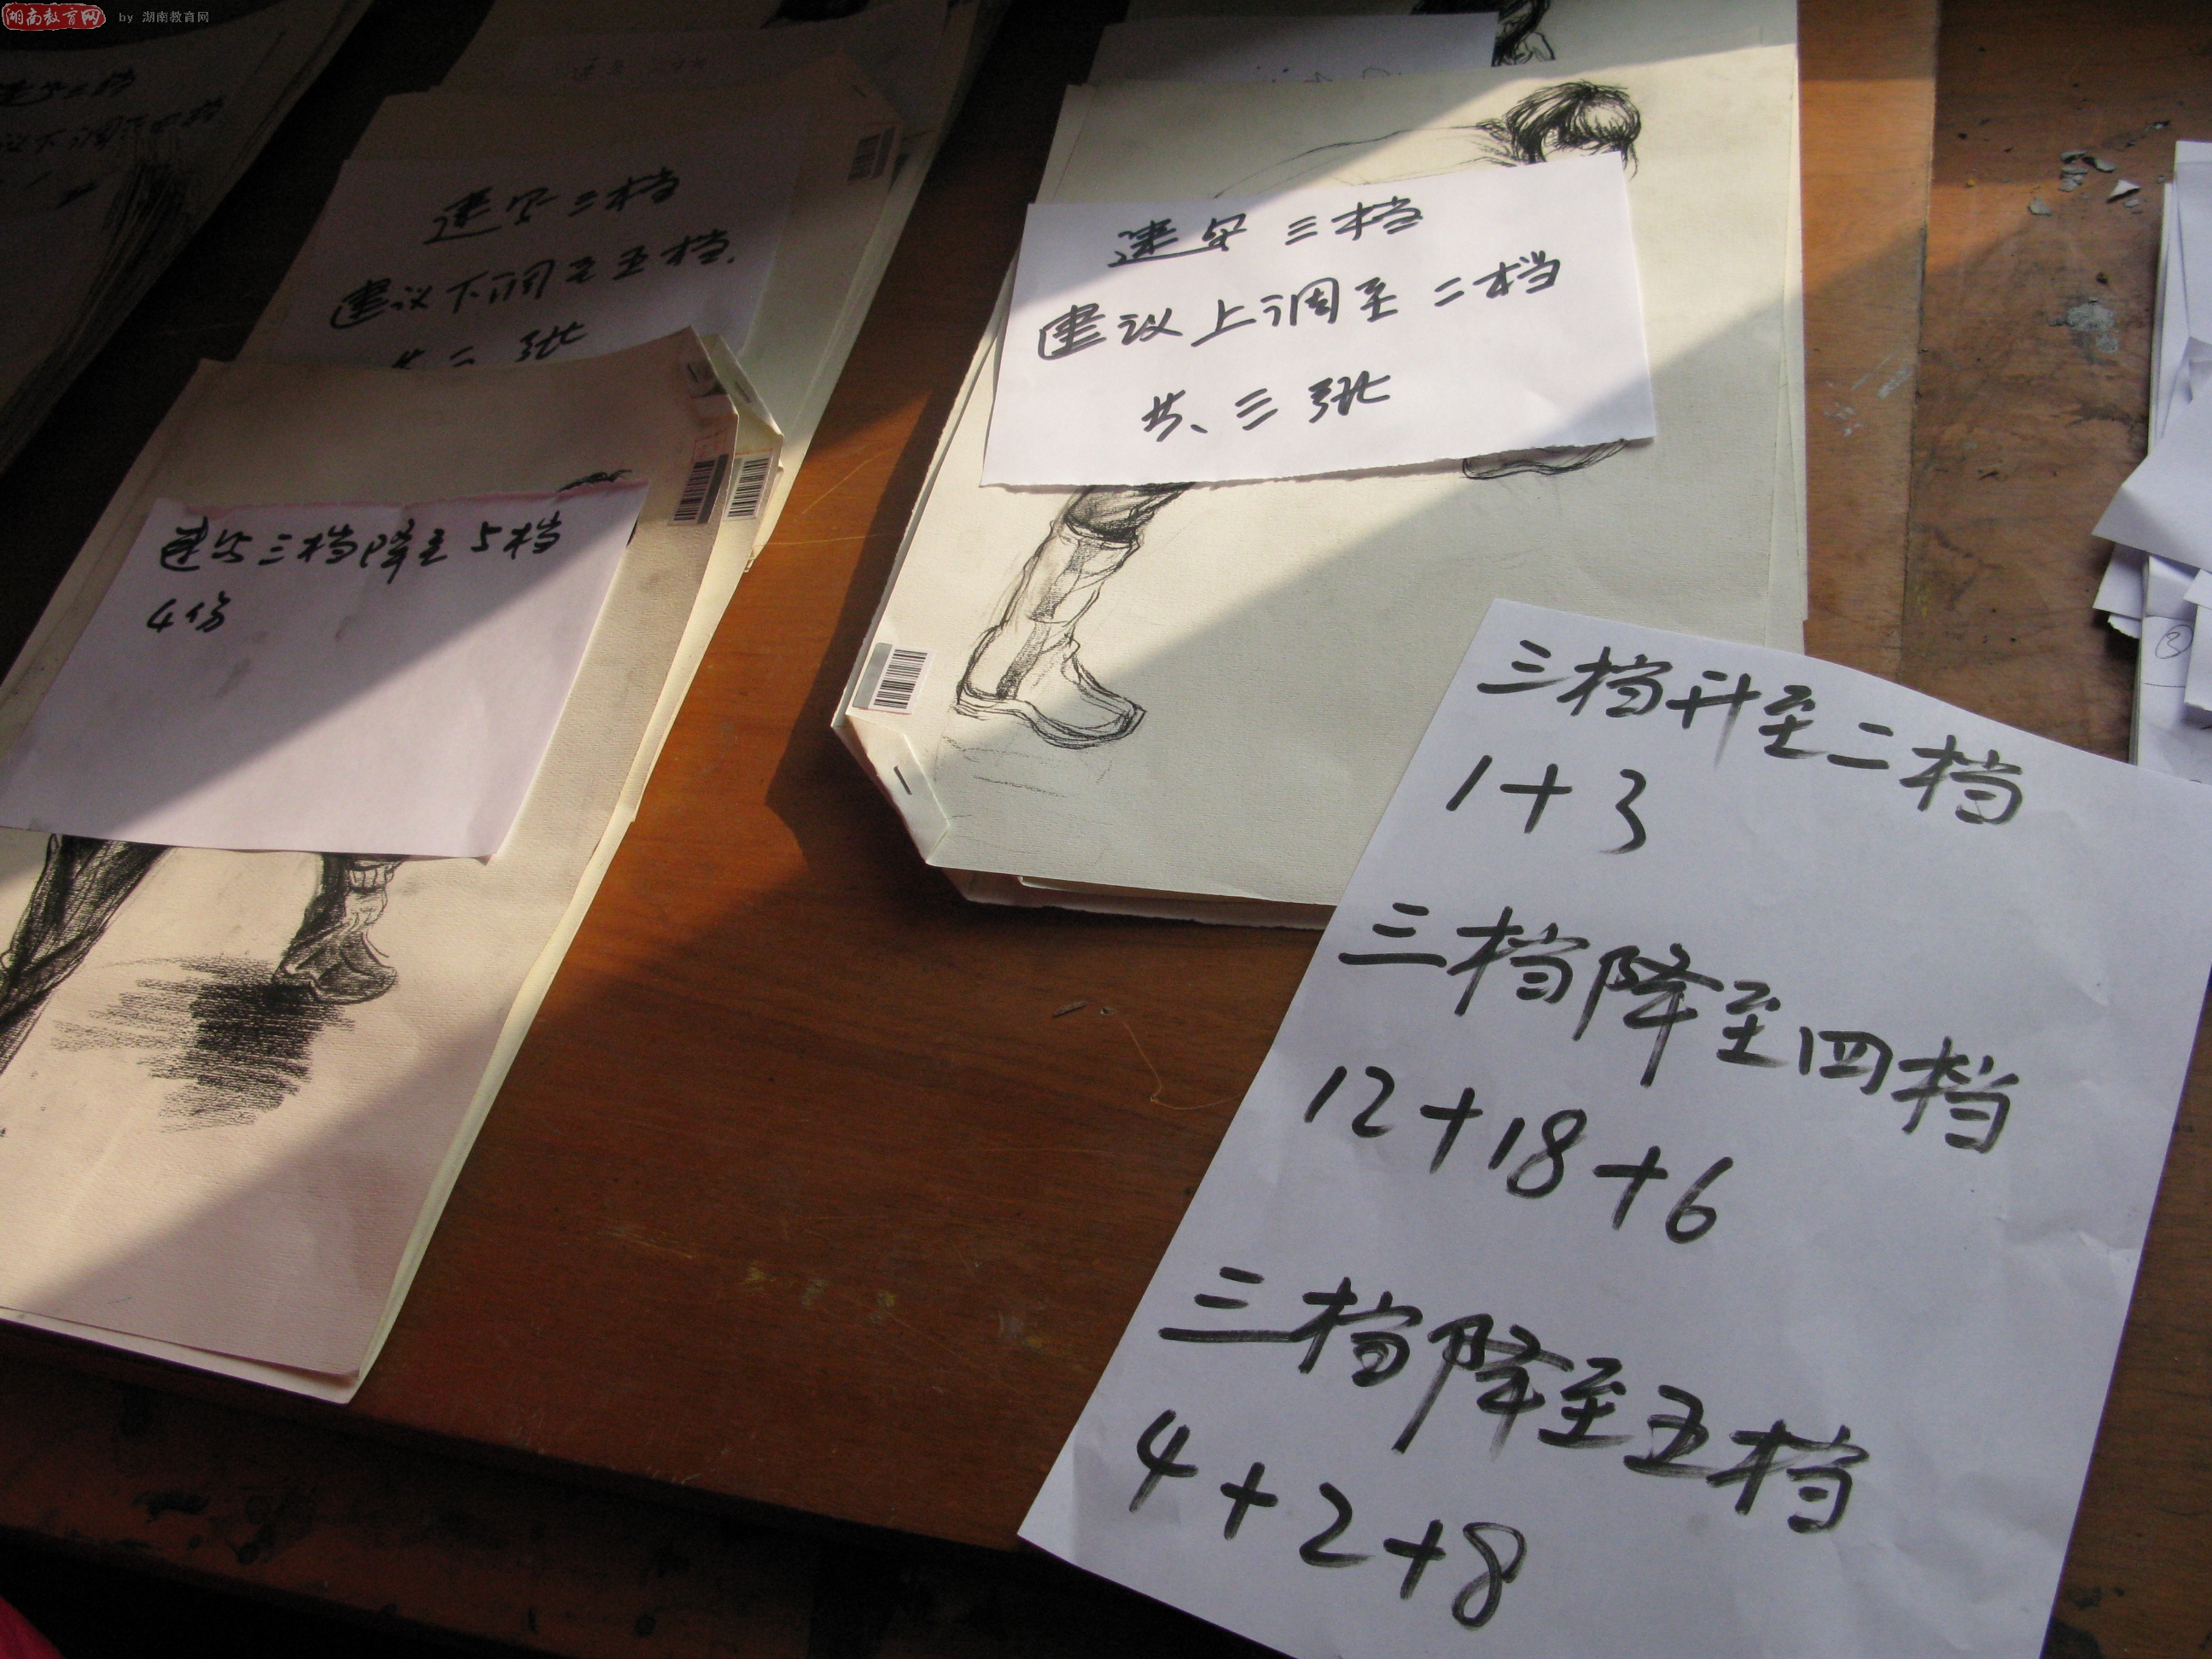 湖南教育网 by 湖南教育网
速写二档
建议下调至五档.
共二张
速写三档
建议上调至二档
共、三张
速写三档降至5档
4份
三档升至二档
1+3
三档降至四档
12+18+6
三档降至五档
4+2+8